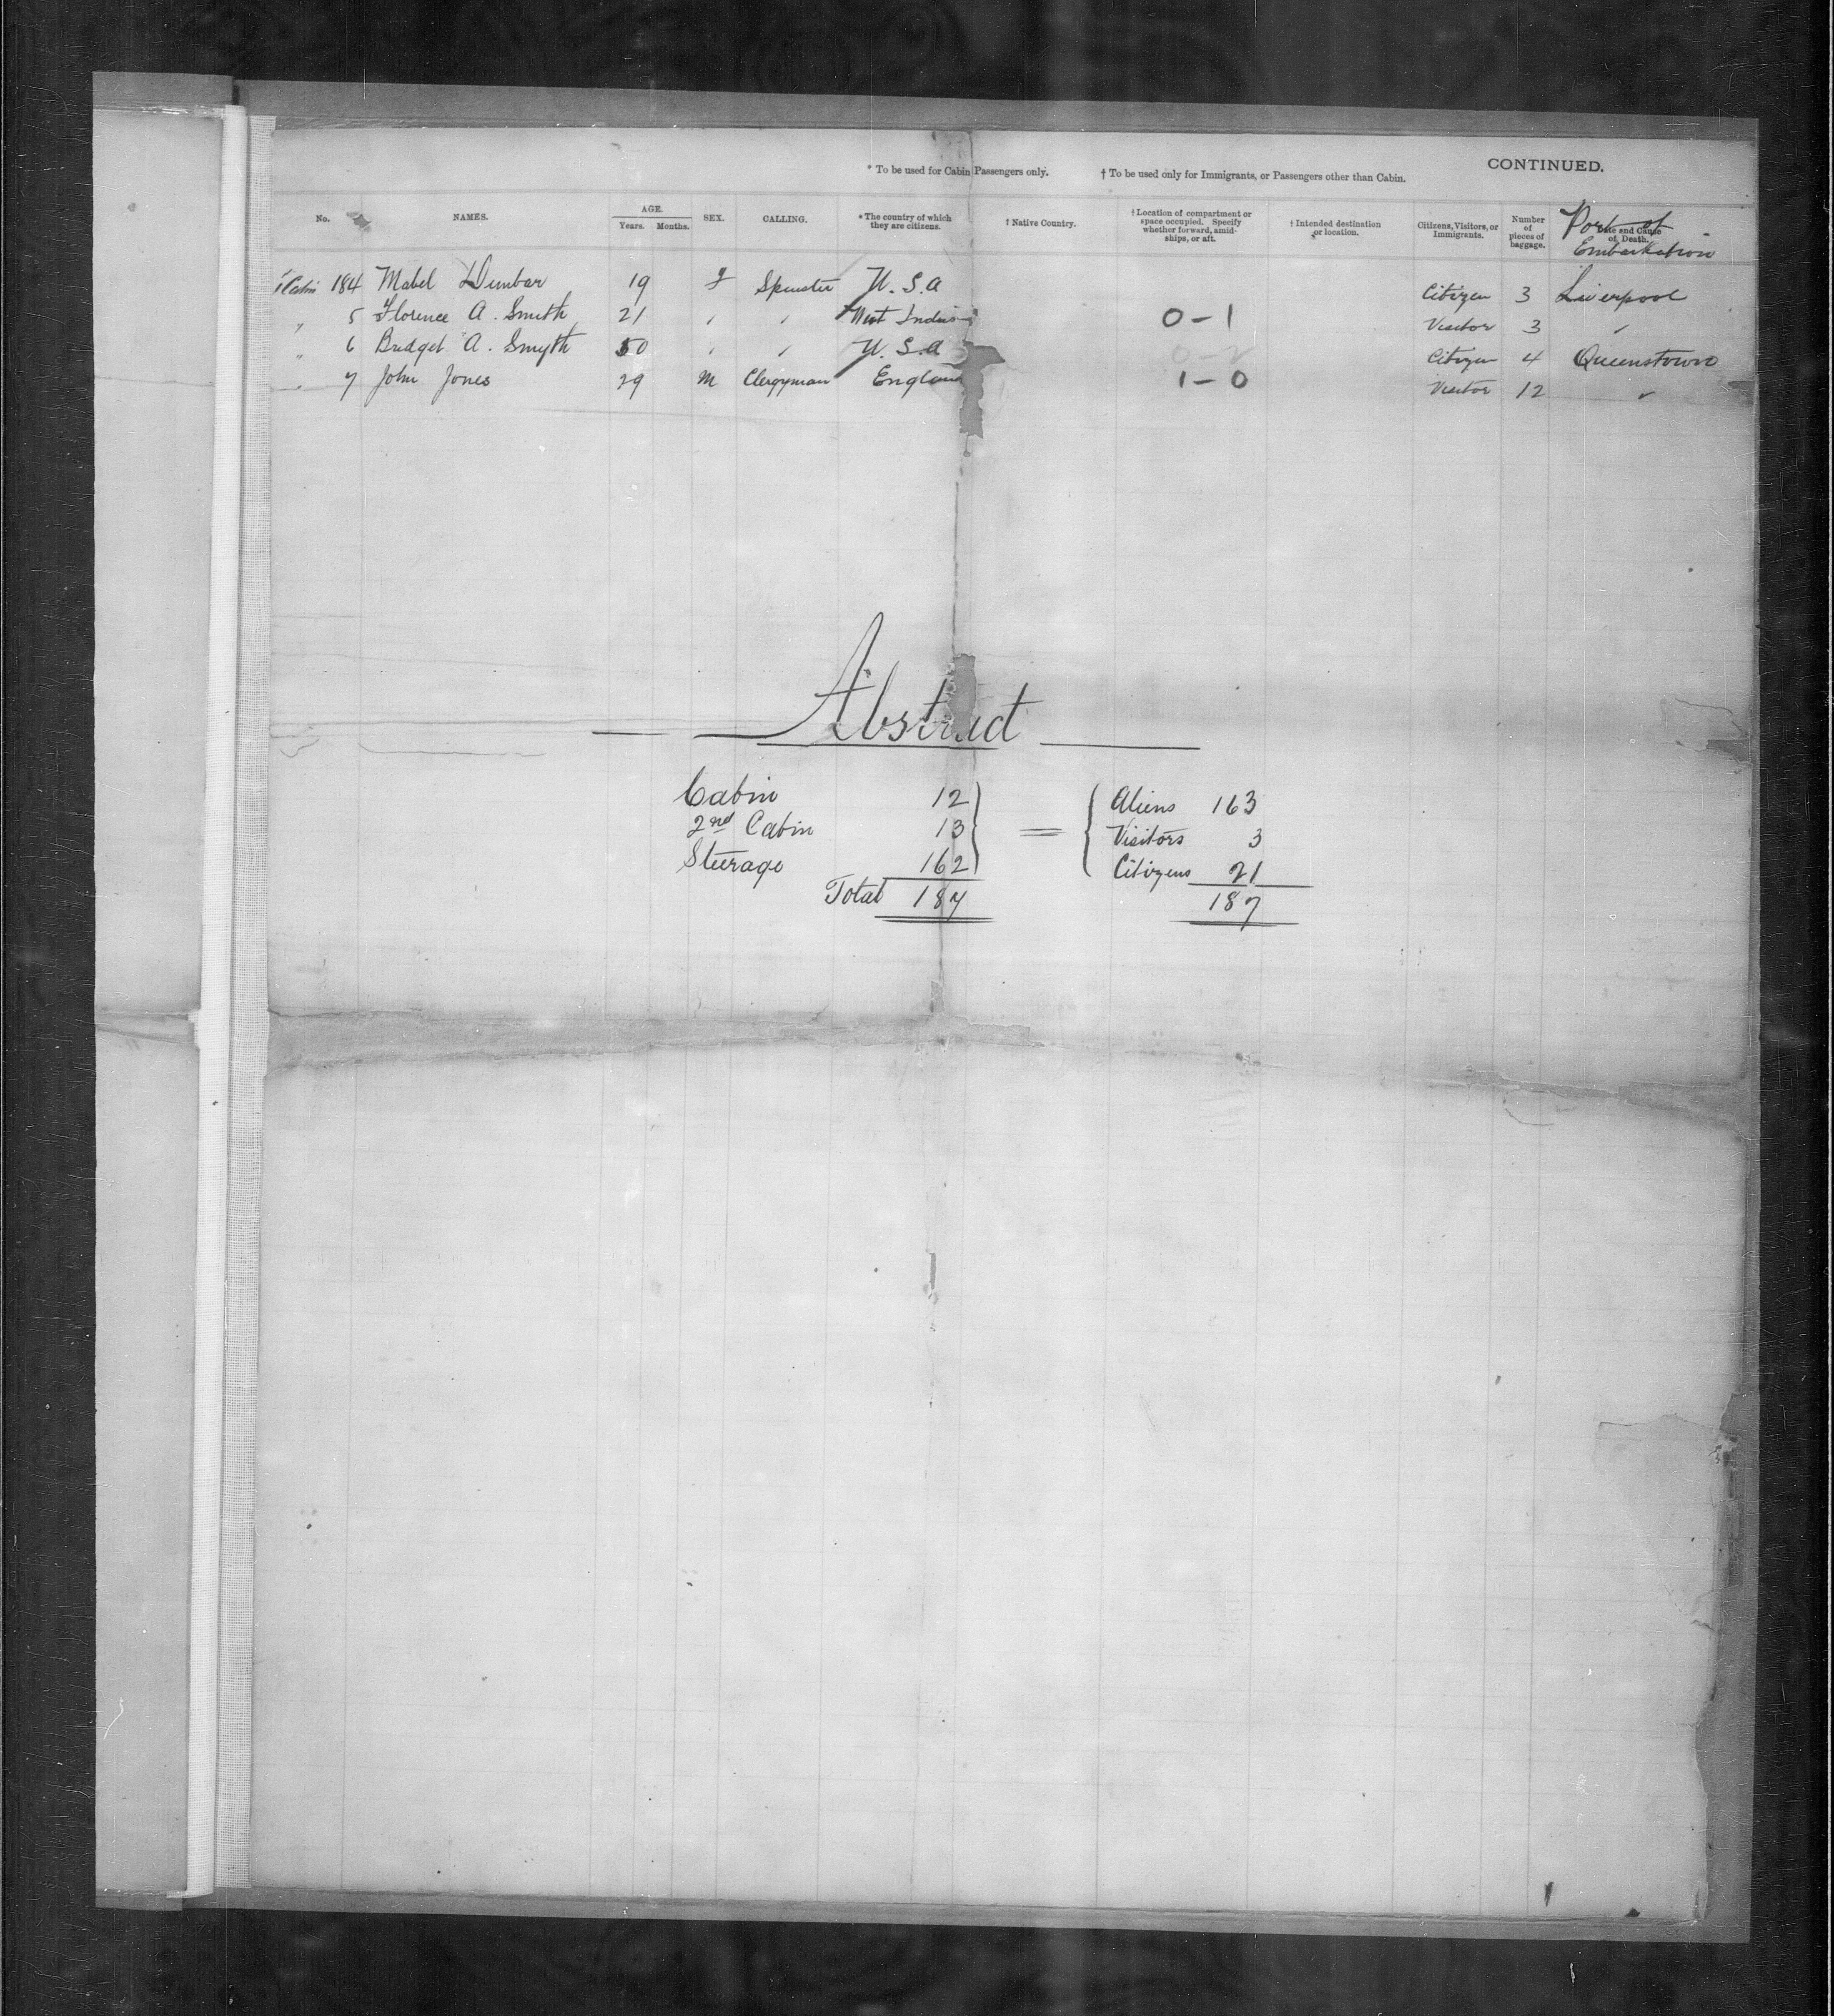 CONTINUED.
* To be used for Cabin Passengers only. † To be used only for Immigrants, or Passengers other than Cabin.
No. NAMES. AGE. Years. Months. SEX. CALLING. * The country of which they are citizens. † Native Country. † Location of compartment or space occupied. Specify whether forward, amidships, or aft. † Intended destination or location. Citizens, Visitors, or Immigrants. Number of pieces of baggage. Date and Cause of Death. Port of Embarkation
1 Cabin 184 Mabel Dunbar 19 f Spinster U.S.A Citizen 3 Liverpool
" 5 Florence A. Smith 21 " " West Indies 0-1 Visitor 3 "
" 6 Bridget A. Smyth 50 " " U.S.A 0-2 Citizen 4 Queenstown
" 7 John Jones 29 M Clergyman England 1-0 Visitor 12 "
Abstract
Cabin 12 } = { Aliens 163
2nd Cabin 13 Visitors 3
Steerage 162 Citizens 21
Total 187 187